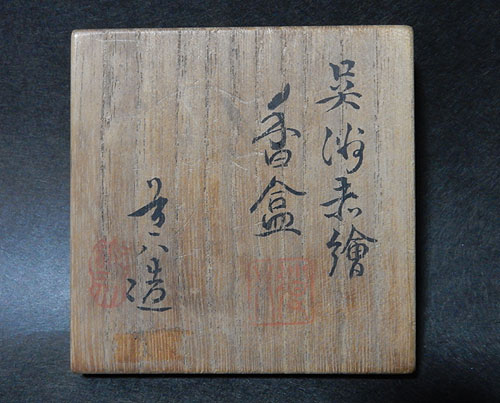 呉洲赤繪
香盒
六造